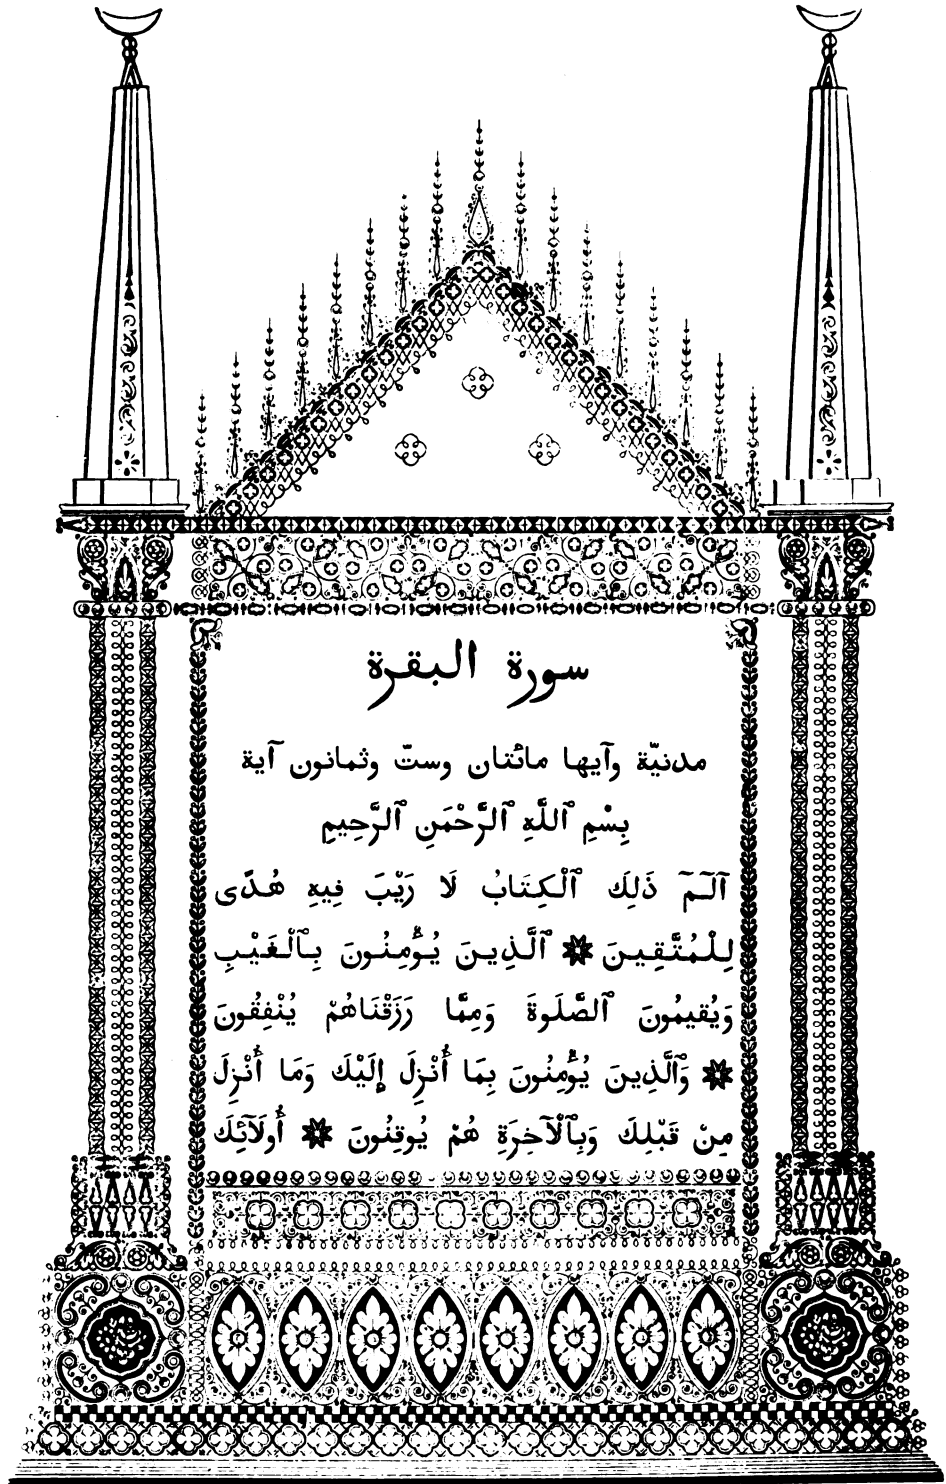 سورة البقرة
مدنيّة وآيها مائتان وستّ وثمانون آية
بِسْمِ ٱللَّهِ ٱلرَّحْمَنِ ٱلرَّحِيمِ
آلَمَ ذَلِكَ ٱلْكِتَابُ لَا رَيْبَ فِيهِ هُدًى
لِلْمُتَّقِينَ ✸ ٱلَّذِينَ يُؤْمِنُونَ بِٱلْغَيْبِ
وَيُقِيمُونَ ٱلصَّلَوةَ وَمِمَّا رَزَقْنَاهُمْ يُنْفِقُونَ
✸ وَٱلَّذِينَ يُؤْمِنُونَ بِمَا أُنْزِلَ إِلَيْكَ وَمَا أُنْزِلَ
مِنْ قَبْلِكَ وَبِٱلْآخِرَةِ هُمْ يُوقِنُونَ ✸ أُولَآئِكَ